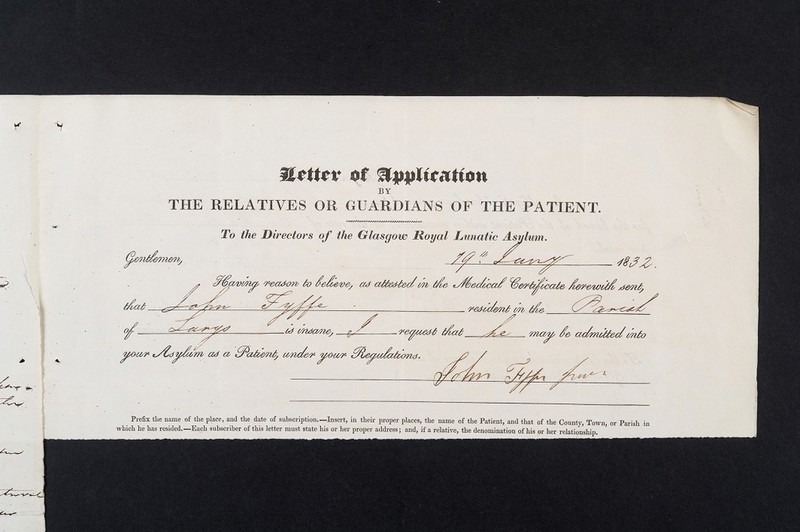 Letter of Application
BY
THE RELATIVES OR GUARDIANS OF THE PATIENT.
To the Directors of the Glasgow Royal Lunatic Asylum.
Gentlemen, 19th Jany 1832.
Having reason to believe, as attested in the Medical Certificate herewith sent,
that John Fyffe resident in the Parish
of Largs is insane, I request that he may be admitted into
your Asylum as a Patient, under your Regulations.
John Fyffe
Prefix the name of the place, and the date of subscription.—Insert, in their proper places, the name of the Patient, and that of the County, Town, or Parish in
which he has resided.—Each subscriber of this letter must state his or her proper address; and, if a relative, the denomination of his or her relationship.